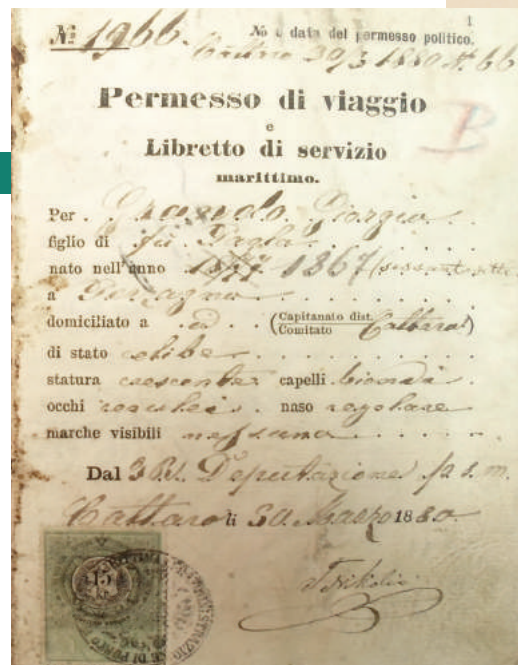 1
No e data del permesso politico.
№ 1966. Cattaro 30/3 1880 № 66
Permesso di viaggio
e
Libretto di servizio
marittimo.
B
Per . Giorgio . .
figlio di fu
nato nell'anno 1877 1867 (sessantasette
a
domiciliato a id . . (Capitanato dist. Comitato Cattaro)
di stato celibe
statura crescente capelli biondi .
occhi cerulei . . naso regolare
marche visibili nessuna
Dal Deputazione p. s. m.
Cattaro li 30 Marzo 1880
15